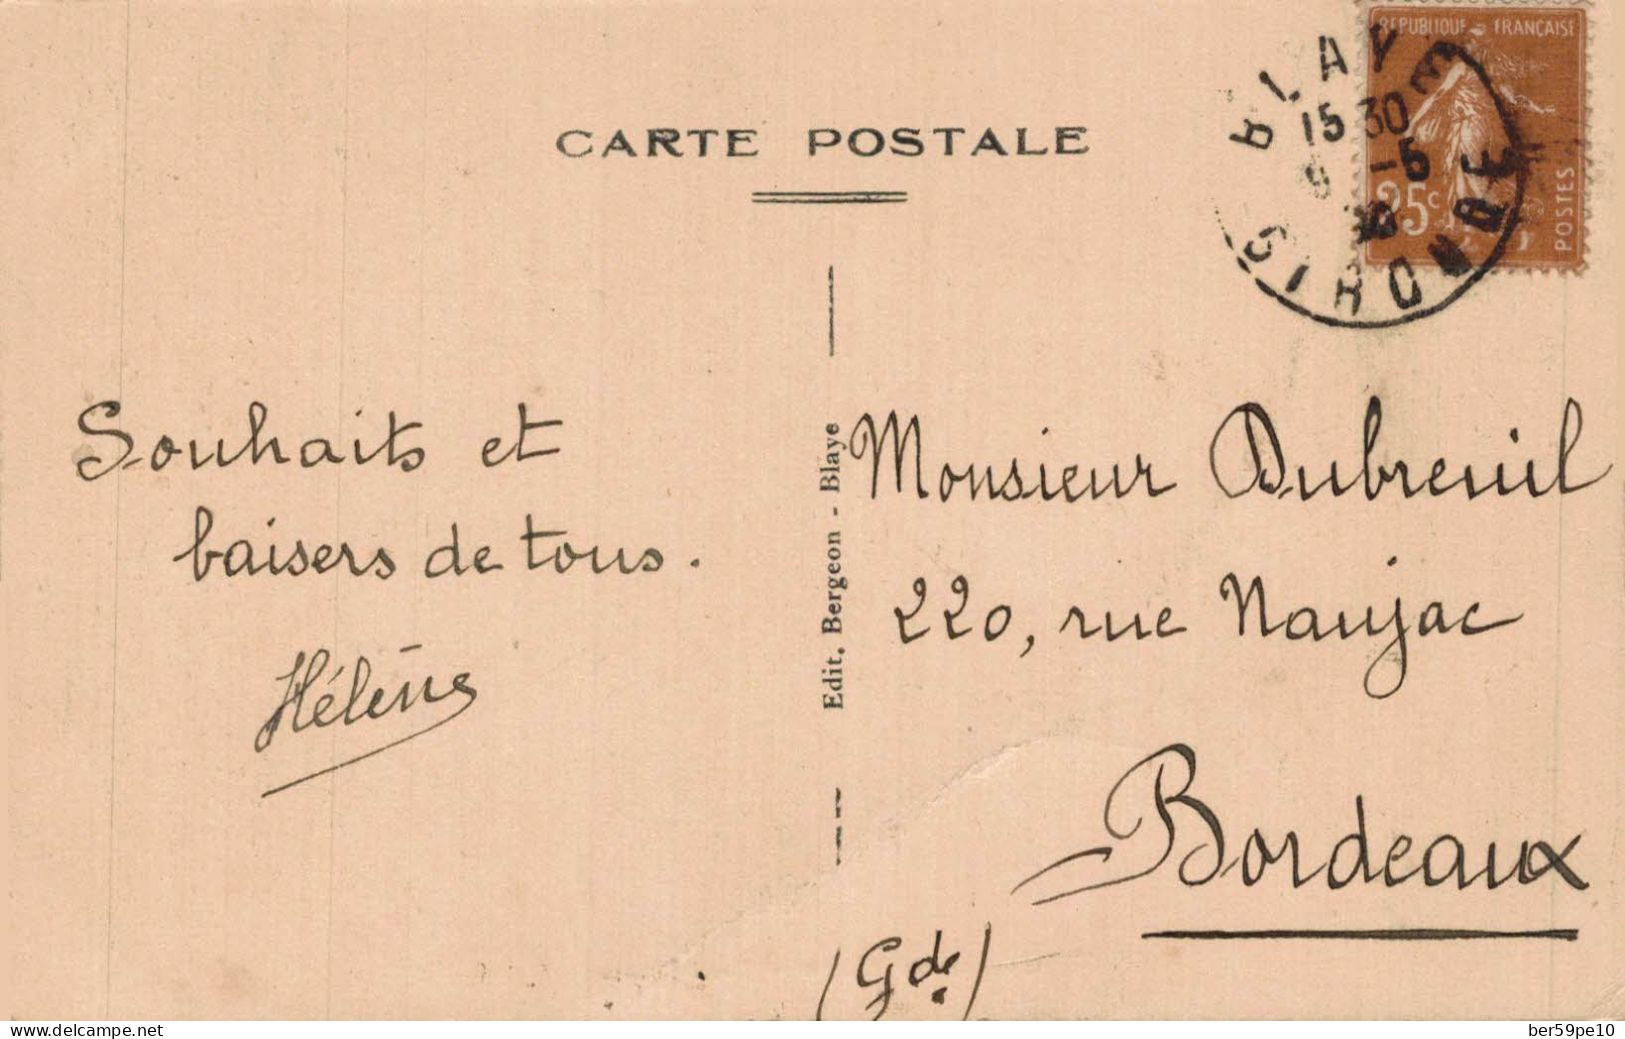 CARTE POSTALE
REPUBLIQUE FRANÇAISE
25c
POSTES
BLAYE
15 30
-5
GIRONDE
Souhaits et
baisers de tous.
Hélène
Edit. Bergeon - Blaye
Monsieur Dubreuil
220, rue Naujac
Bordeaux
(Gde)
www.delcampe.net
ber59pe10